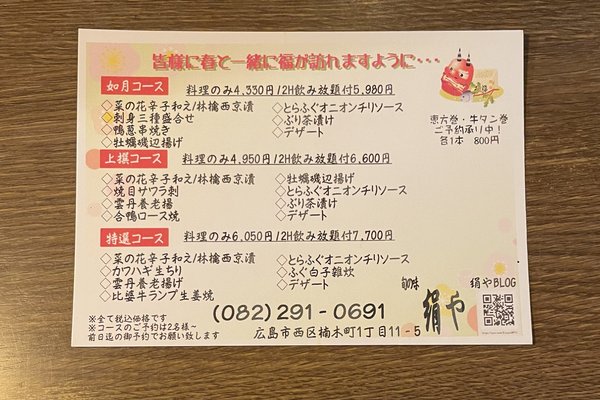 皆様に春と一緒に福が訪れますように・・・
如月コース 料理のみ4,330円/2H飲み放題付5,980円
◇菜の花辛子和え/林檎西京漬
◇刺身三種盛合せ
◇鴨葱串焼き
◇牡蠣磯辺揚げ
◇とらふぐオニオンチリソース
◇ぶり茶漬け
◇デザート
恵方巻・牛タン巻
ご予約承り中!
各1本 800円
上撰コース 料理のみ4,950円/2H飲み放題付6,600円
◇菜の花辛子和え/林檎西京漬
◇焼目サワラ刺
◇雲丹養老揚
◇合鴨ロース焼
◇牡蠣磯辺揚げ
◇とらふぐオニオンチリソース
◇ぶり茶漬け
◇デザート
特選コース 料理のみ6,050円/2H飲み放題付7,700円
◇菜の花辛子和え/林檎西京漬
◇カワハギ生ちり
◇雲丹養老揚げ
◇比婆牛ランプ生姜焼
◇とらふぐオニオンチリソース
◇ふぐ白子雑炊
◇デザート
※全て税込価格です
※コースのご予約は2名様~
前日迄の御予約でお願い致します
(082)291-0691
広島市西区楠木町1丁目11-5
旬の味
絹や
絹やBLOG